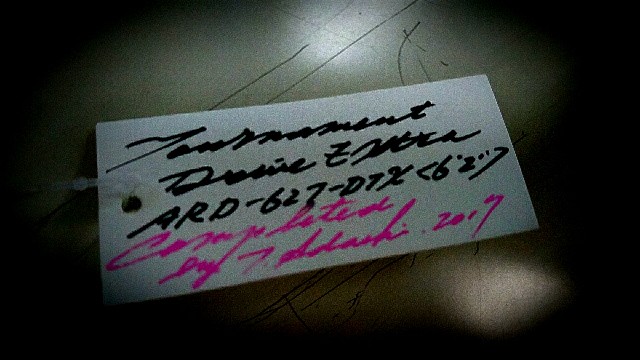 Tournament
Drive Extra
ARD-627-DTX <6'2">
Completed
by T. Adachi. 2017